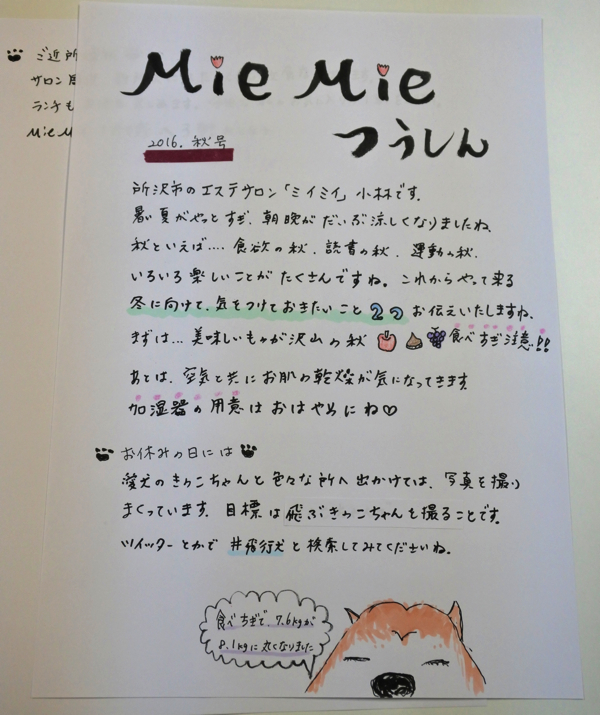 Mie Mie
つうしん
2016. 秋号
所沢市のエステサロン「ミイミイ」小林です。
暑い夏がやっとすぎ、朝晩がだいぶ涼しくなりましたね。
秋といえば‥‥食欲の秋、読書の秋、運動の秋。
いろいろ楽しいことがたくさんですね。これからやって来る
冬に向けて、気をつけておきたいこと2つお伝えいたしますね。
まずは…美味しいものが沢山の秋 食べすぎ注意!!
あとは、空気と共にお肌の乾燥が気になってきます
加湿器の用意はおはやめにね♡
お休みの日には
愛犬のきゅこちゃんと色々な所へ出かけては、写真を撮り
まくっています。目標は飛ぶきゅこちゃんを撮ることです。
ツイッターとかで #飛行犬 と検索してみてくださいね。
食べすぎで、7.6kgが
8.1kgに丸くなりました
ご近所
サロン
ランチも
Mie M